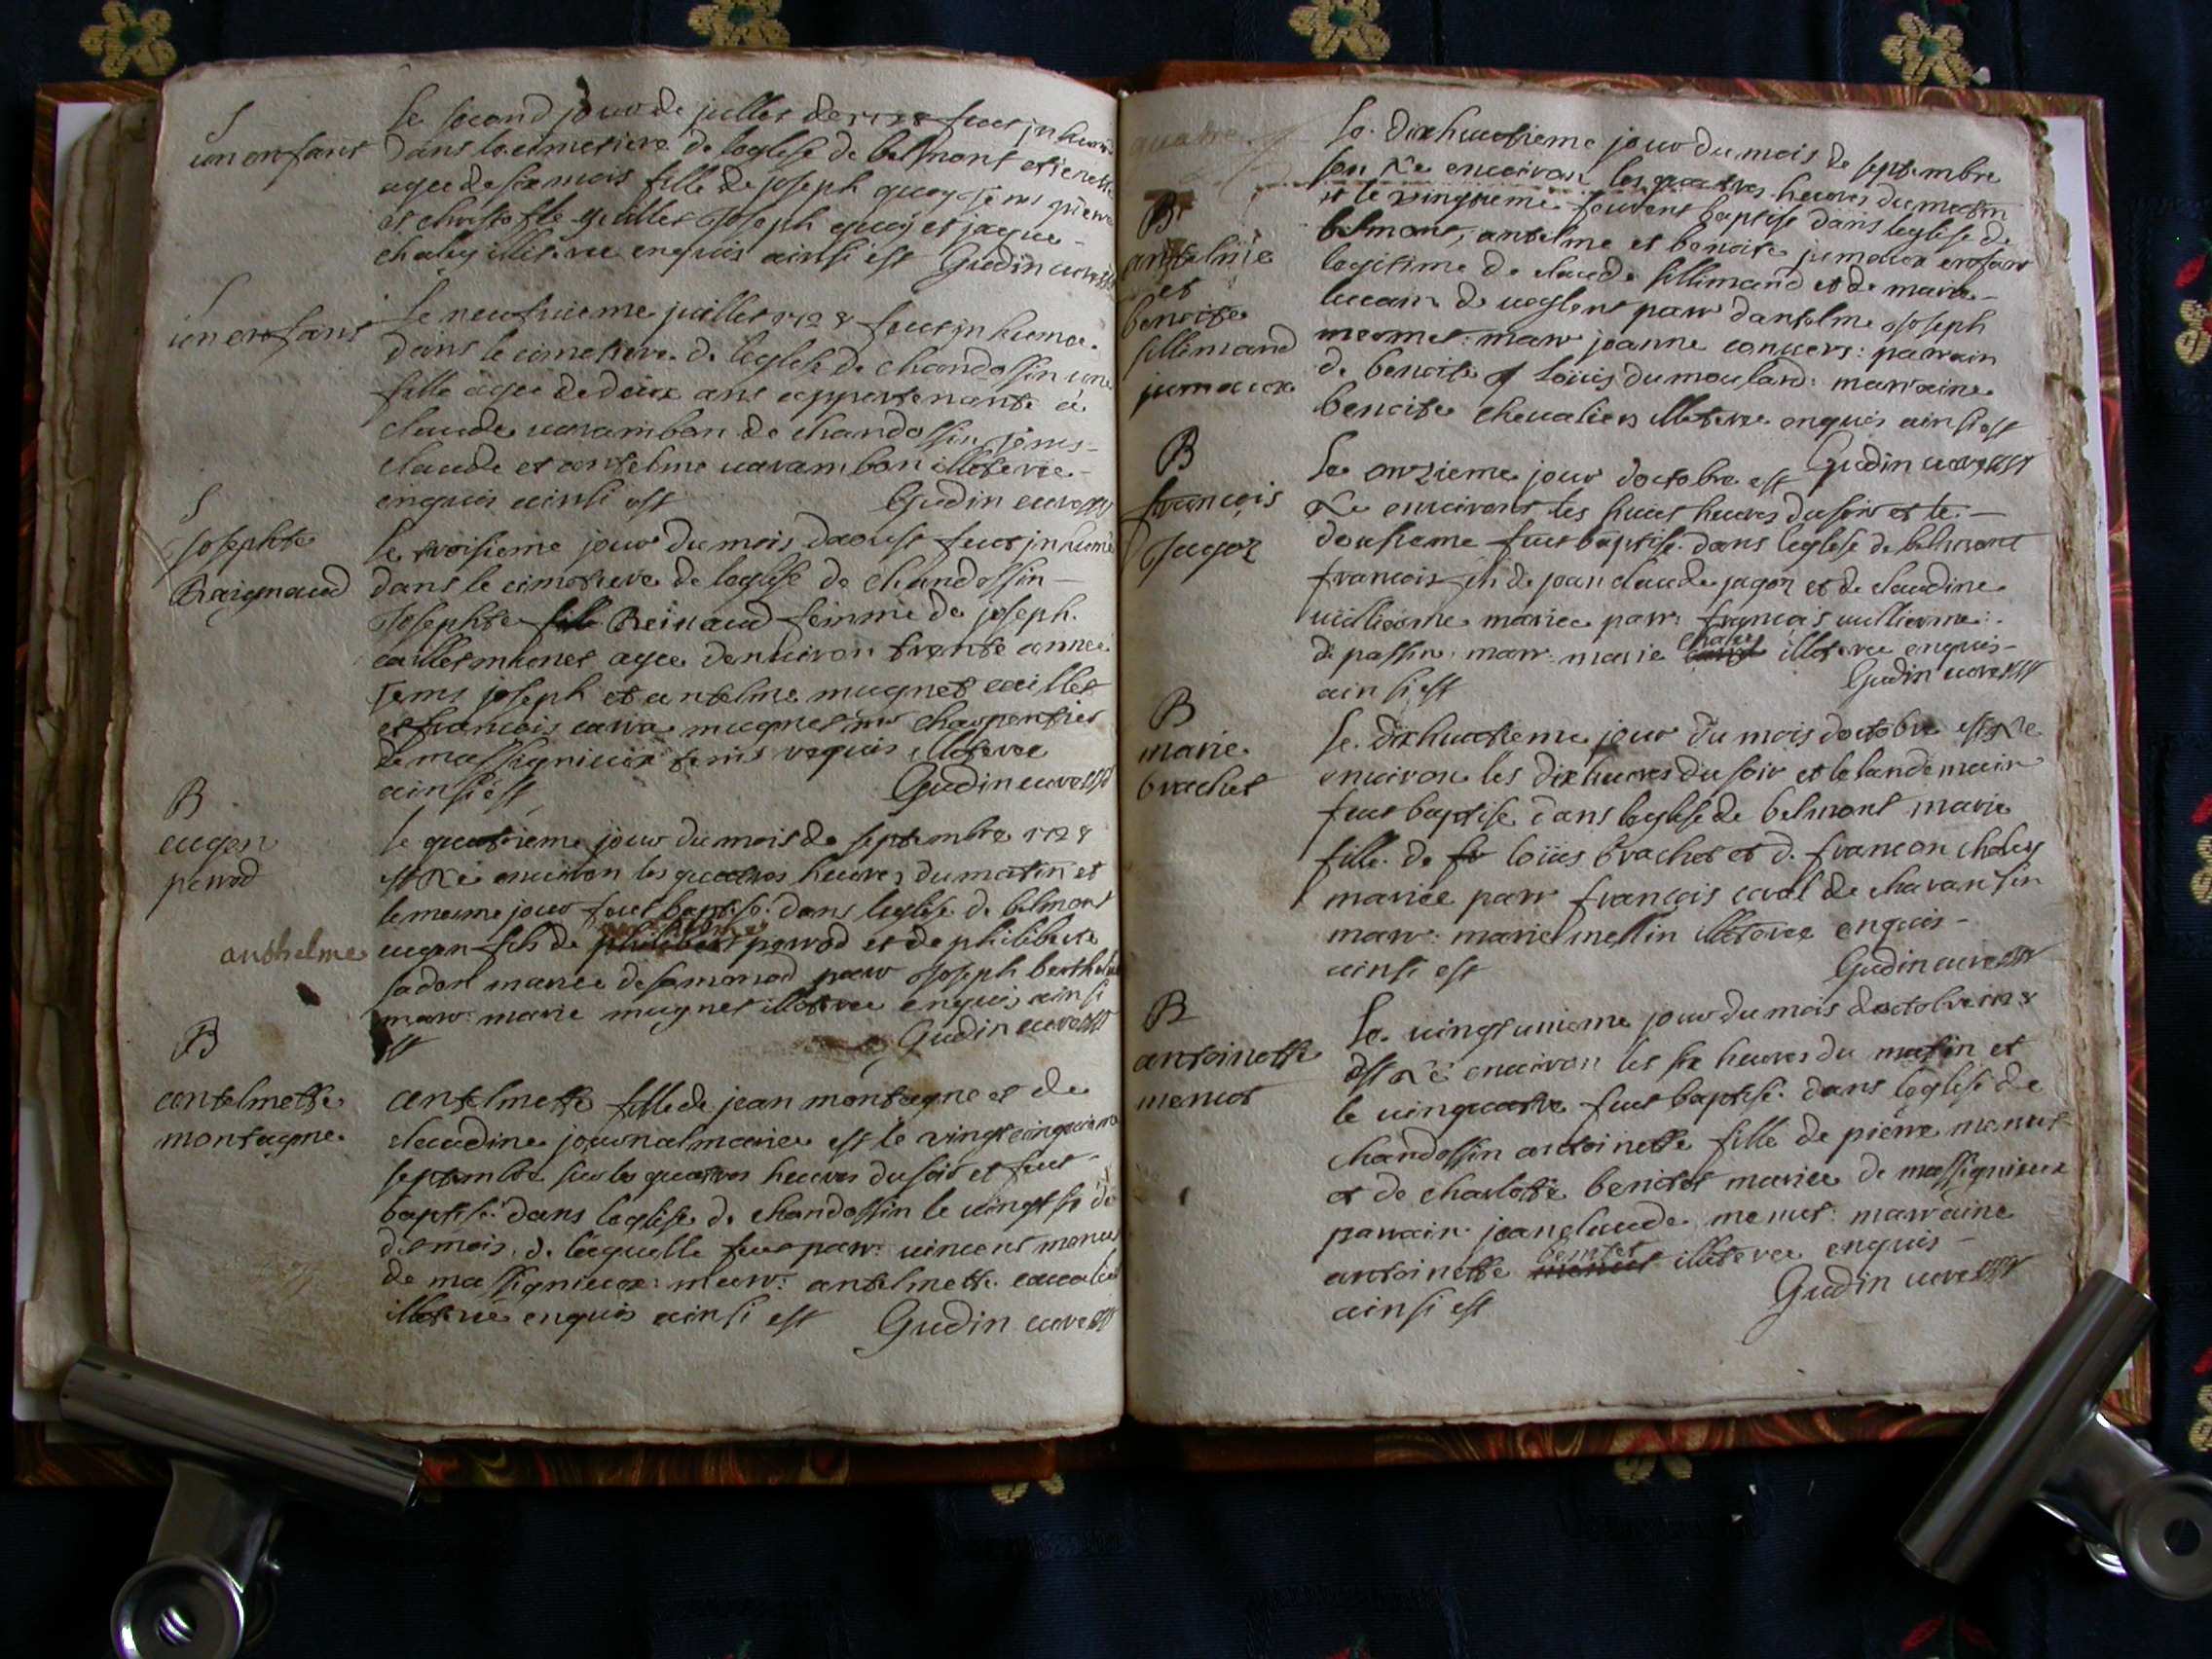 S
un enfant
le second jour de juillet de 1728 fut inhumé
dans le cimetiere de leglise de belmont
agee de six mois fille de joseph quoy
et christofle joseph quoy et jaque
chaley illiteree enquis ainsi est Gudin cure
S
un enfant
le neufvieme juillet 1728 fut inhumee
dans le cimetiere de leglise de chandossin une
fille agee de deux ans appartenante a
claude varambon de chandossin
claude et antelme varambon illiteree
enquis ainsi est Gudin cure
S
Josephte
Raignaud
le troisieme jour du mois daoust fut inhume
dans le cimetiere de leglise de chandossin
Josephte Reinaud femme de joseph
caillet mugnet agee denviron trente annee
tems joseph et antelme mugnet caillet
et francois carra mugnet charpentier
de massignieux tems requis illiteree
ainsi est Gudin cure
B
eugen
perrod
le quatrieme jour du mois de septembre 1728
est né environ les quatres heures du matin et
le meme jour fut baptisé dans leglise de belmont
anthelme
eugen fils de philibert perrod et de philiberte
mariee de samonod parr joseph
marr marie mugnet illiteree enquis ainsi
est Gudin cure
B
antelmette
montagne
antelmette fille de jean montagne et de
claudine journal mariee est le vingt cinquieme
septembre sur les quatres heures du soir et fut
baptisé dans leglise de chandossin le vingt six de
du mois de laquelle fut parr vincent menut
de massignieux marr antelmette
illiteree enquis ainsi est Gudin cure
B
antelme
et
benoite
sillimand
jumeaux
le dixhuitieme jour du mois de septembre
son né environ les quatres heures du matin
et le vingtieme feurent baptisé dans leglise de
belmont, antelme et benoite jumeaux enfans
legitime de claude sillimand et de marie
de parr dantelme joseph
mermet marr joanne convers parrain
de benoite louis dumoulard marraine
benoite chevaliers illiteree enquis ainsi est
Gudin cure
B
francois
Jugoz
le onzieme jour doctobre est
né environt les huit heures du soir et le
dousieme fut baptisé dans leglise de belmont
francois fils de jean claude jagoz et de claudine
vuillierme mariee parr francois vuillierme
de passin marr marie chaley illiteree enquis
ainsi est Gudin cure
B
marie
brachet
le dixhuitieme jour du mois doctobre est né
environ les dix heures du soir et le landemain
fut baptisé dans leglise de belmont marie
fille de louis brachet et d francon chaley
mariee parr francois caval de chavansin
marr marie mellin illiteree enquis
ainsi est Gudin cure
B
antoinette
menut
le vingtunieme jour du mois doctobre 1728
est né environ les six heures du matin et
le vingquatre fut baptisé dans leglise de
chandossin antoinette fille de pierre menut
et de charlotte benitet mariee de massignieux
parrain jean claude menut marraine
antoinette benitet illiteree enquis
ainsi est Gudin cure